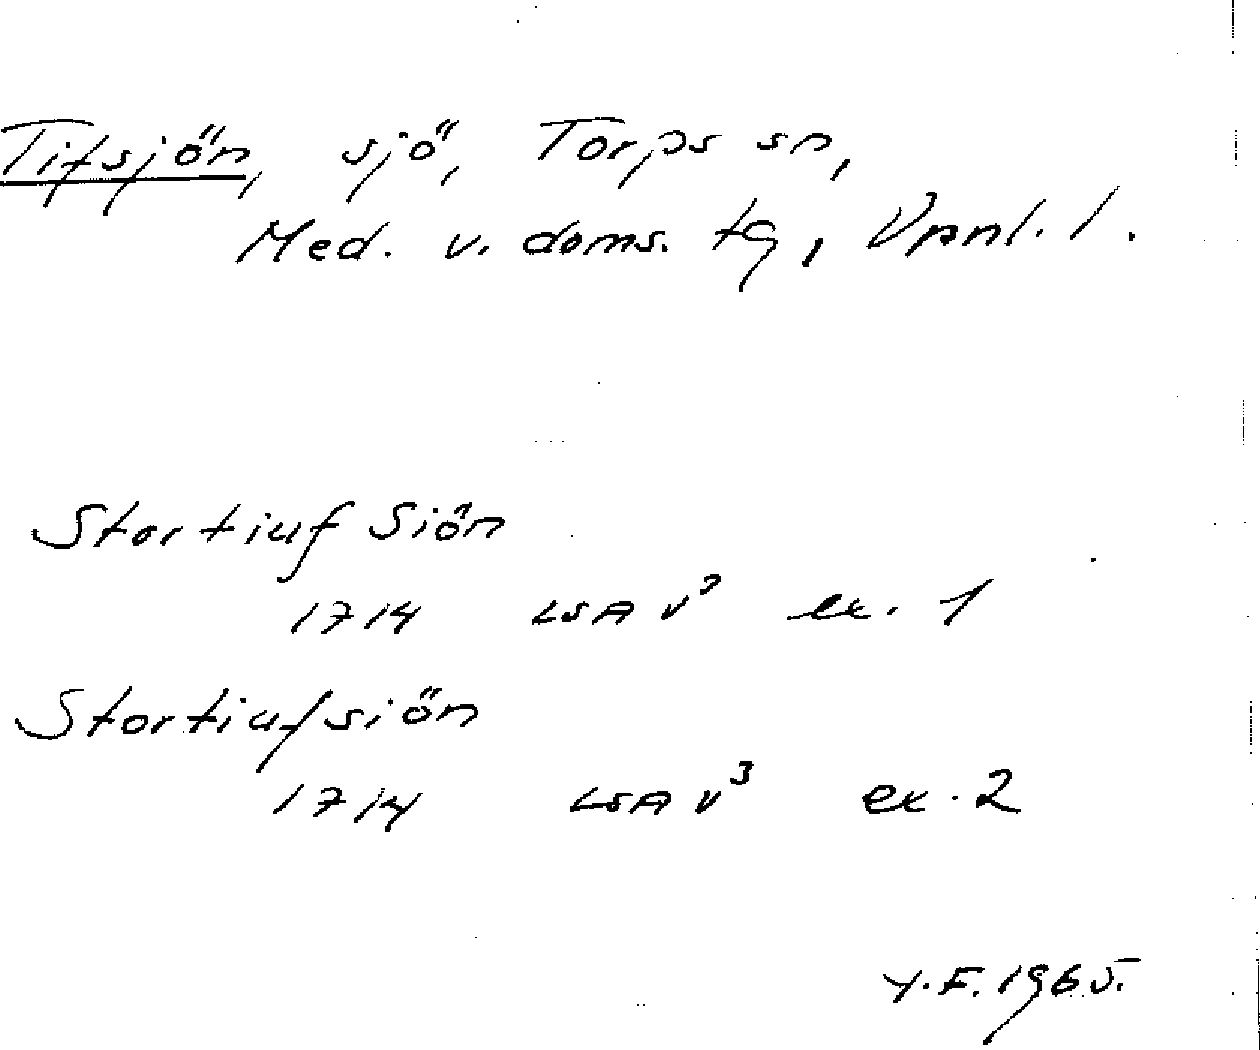 Tifsjön, sjö, Torps sn,
Med. v. doms. tg, Vpnl. l.
Stortiuf Siön
1714 LSA V³ ex. 1
Stortiufsiön
1714 LSA V³ ex. 2
Y.F. 1965.